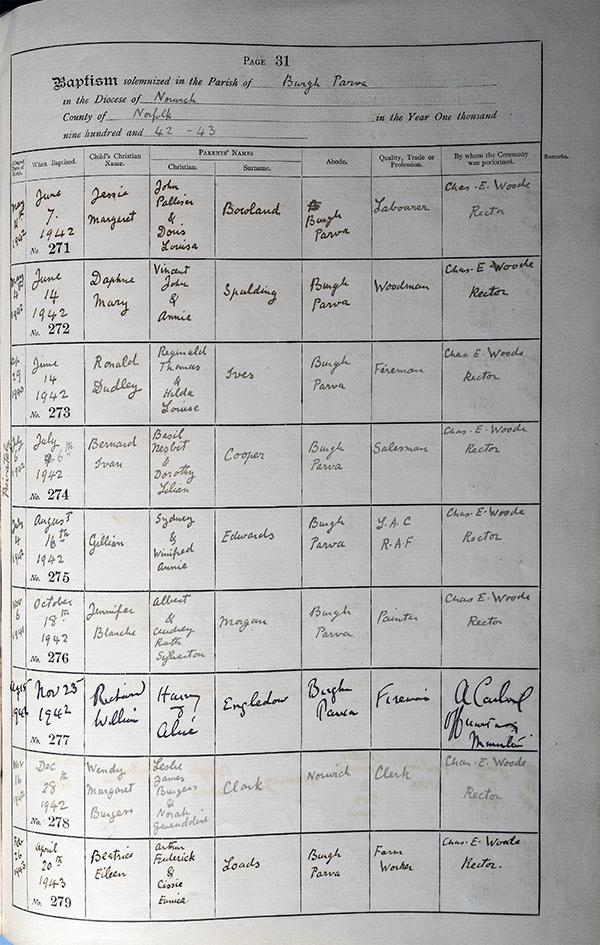 PAGE 31
Baptism solemnized in the Parish of Burgh Parva
in the Diocese of Norwich
County of Norfolk in the Year One thousand
nine hundred and 42 - 43
When Baptized. Child's Christian Name. PARENTS' NAMES Christian. Surname. Abode. Quality, Trade or Profession. By whom the Ceremony was performed. Remarks.
May 1942
June 7. 1942
No. 271
Jessie Margaret
John Pallison & Doris Louisa
Bowland
Burgh Parva
Labourer
Chas. E. Woode Rector
May 4th 1942
June 14 1942
No. 272
Daphne Mary
Vincent John & Annie
Spalding
Burgh Parva
Woodman
Chas. E. Woode Rector
29 1940
June 14 1942
No. 273
Ronald Dudley
Reginald Thomas & Hilda Louise
Ives
Burgh Parva
Fireman
Chas. E. Woode Rector
Privately
July 6 1942
July 6th 1942
No. 274
Bernard Ivan
Basil Nesbit & Dorothy Lilian
Cooper
Burgh Parva
Salesman
Chas. E. Woode Rector
July 4 1942
August 16th 1942
No. 275
Gillian
Sydney & Winifred Annie
Edwards
Burgh Parva
L.A.C R.A.F
Chas. E. Woode Rector
Nov 6
October 18th 1942
No. 276
Jennifer Blanche
Albert & Audrey Ruth Sylverton
Morgan
Burgh Parva
Painter
Chas E. Woode Rector
1942
Nov 25 1942
No. 277
Richard William
Harry & Alice
Engledow
Burgh Parva
Fireman
Nov 16 1942
Dec 28th 1942
No. 278
Wendy Margaret Burgess
Leslie James Burgess & Norah Gwendoline
Clark
Norwich
Clerk
Chas. E. Woode Rector
Feb 26 1943
April 20th 1943
No. 279
Beatrice Eileen
Arthur Frederick & Cissie Eunice
Loads
Burgh Parva
Farm Worker
Chas. E. Woode Rector.